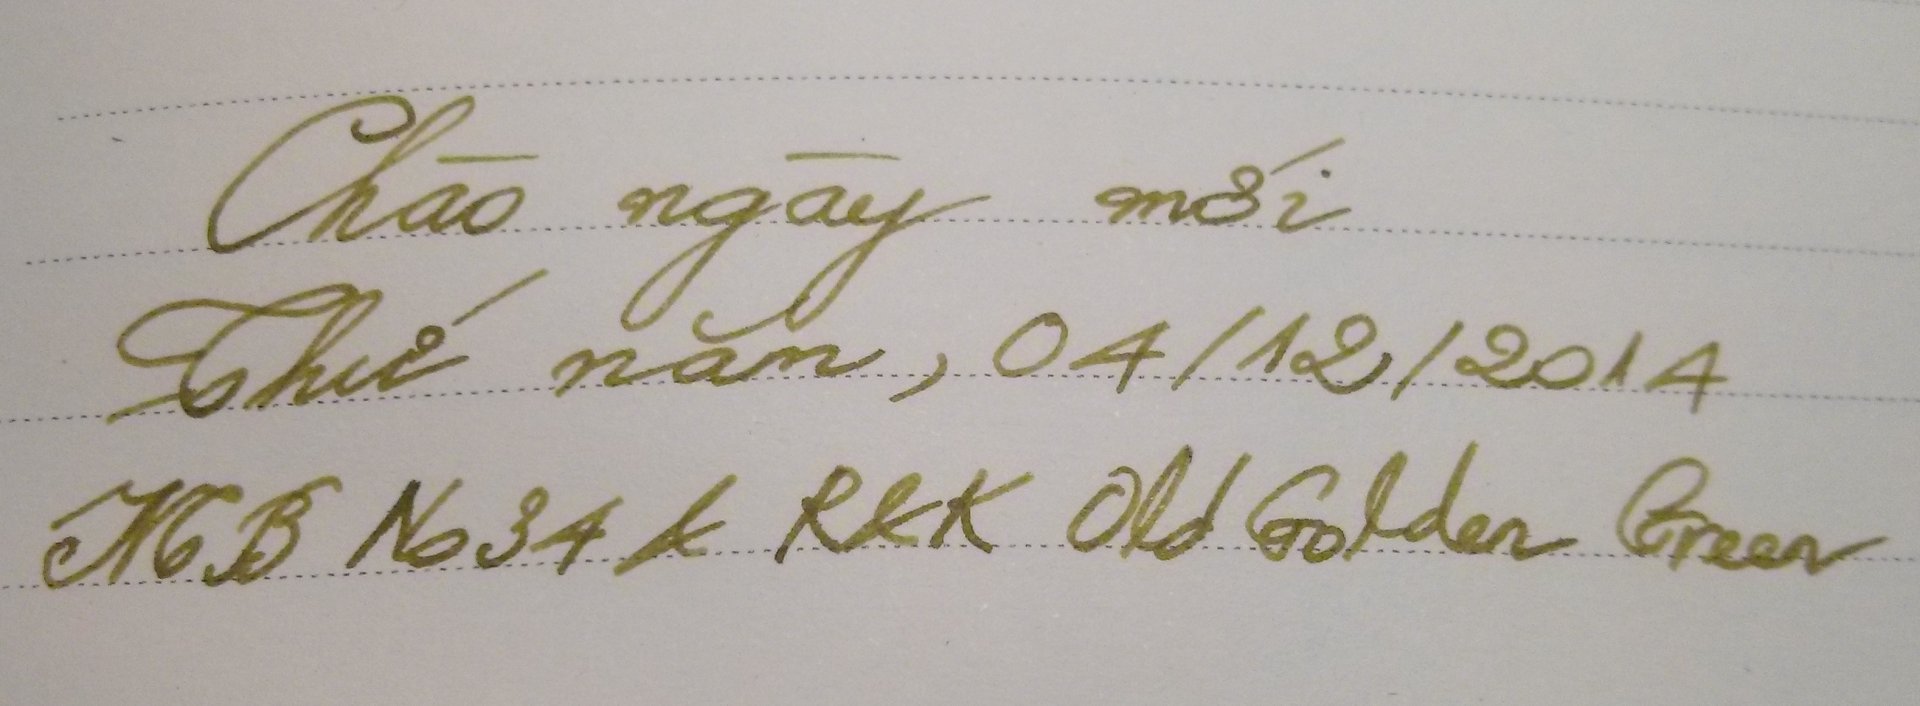 Chào ngày mới
Thứ năm, 04/12/2014
MB No 34 & R&K Old Golden Green